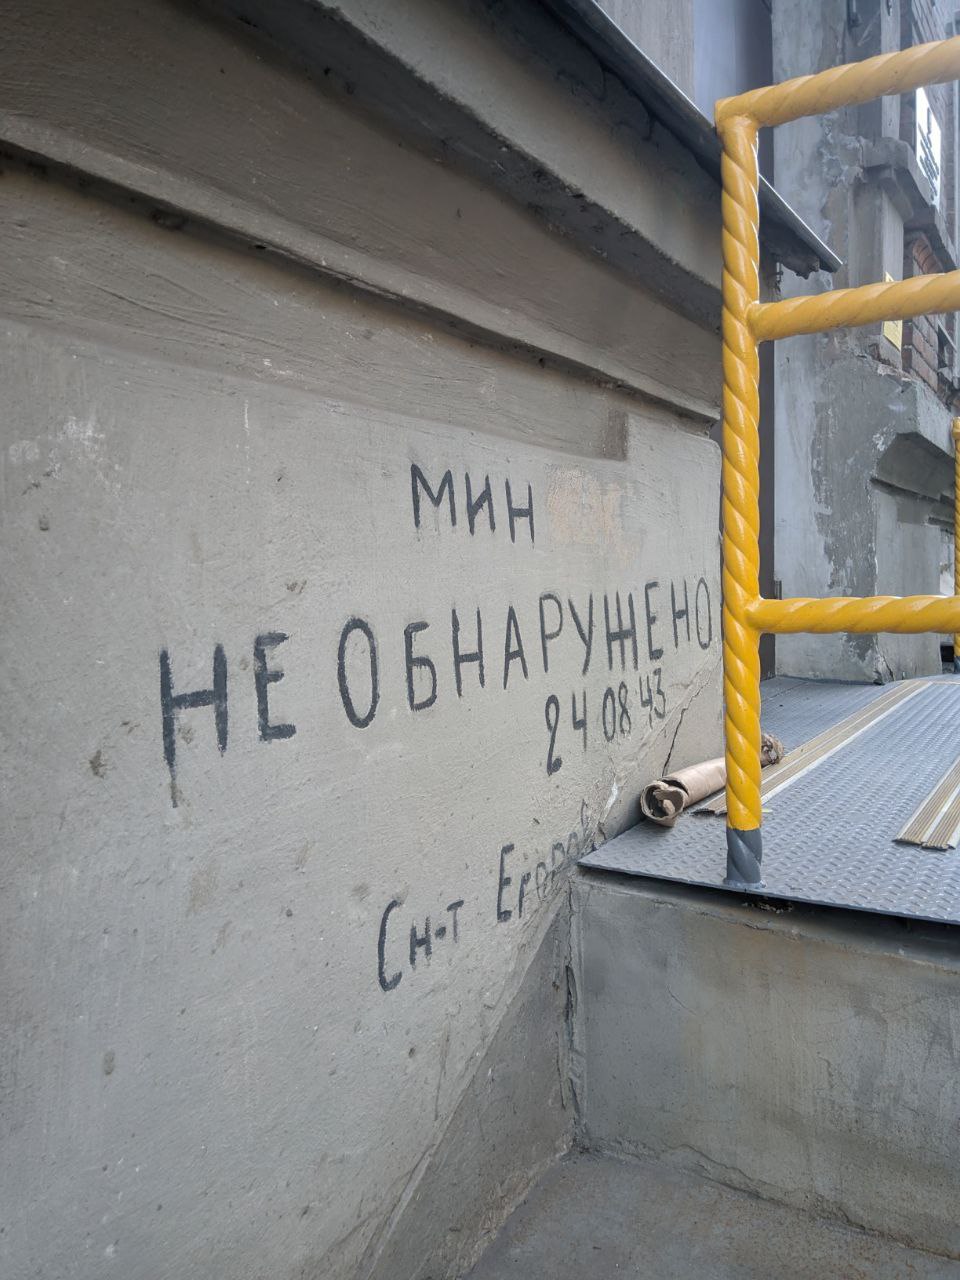 МИН
НЕ ОБНАРУЖЕНО
24 08 43
Сн-т Егоров